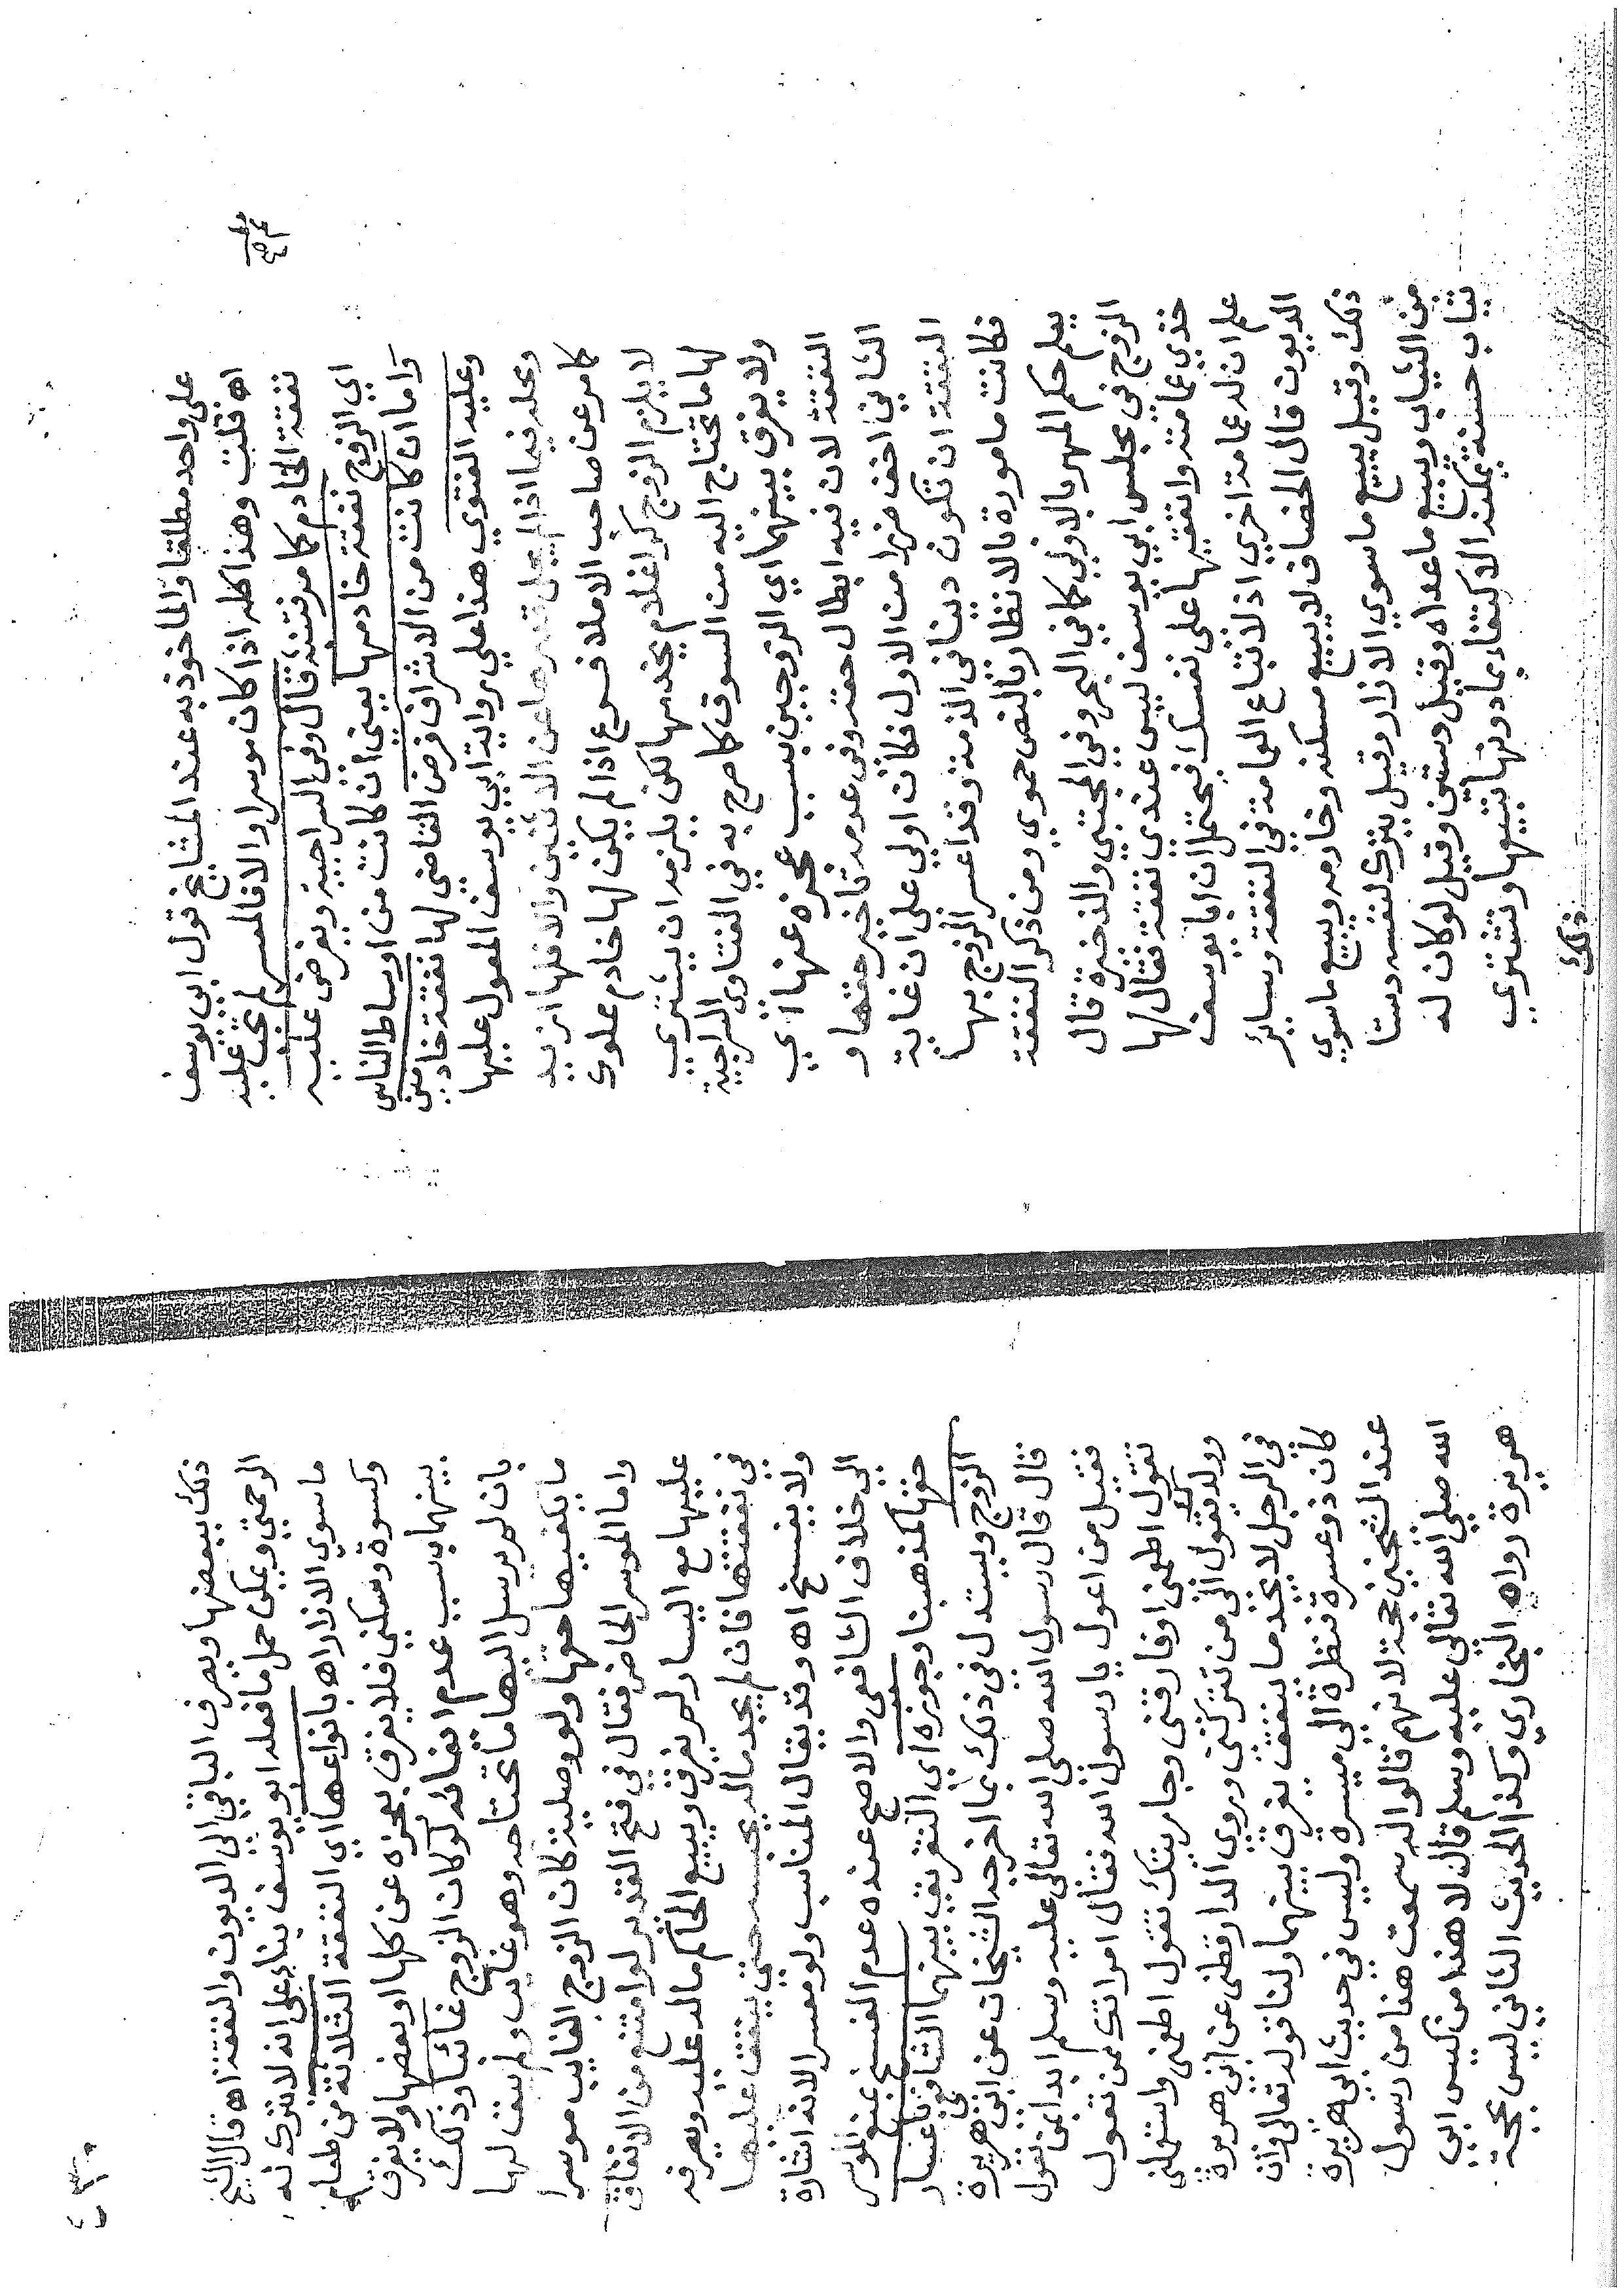 على واحد مطلقا والماخوذ به عند المشايخ قول ابي يوسف
اه قلت وهذا كله اذا كان موسرا والا فالمعسر لم تجب عليه
نفقة الخادم كما مر فتنبه قال وفي السراجية ويفرض عليه
اي الزوج نفقة خادمها يعني ان كانت من اوساط الناس
واما ان كانت من الاشراف فرض القاضي لها نفقة خادمين
وعليه الفتوي هذا علي رواية ابي يوسف المعول عليها
ومحله فيما اذا لم يجل قدرها عن الاثنين والا فلها ازيد
كما مر عن صاحب الاملا فروع اذا لم يكن لها خادم مملوك
لا يلزم الزوج كرا غلام يخدمها لكن يلزمه ان يشتري
لها ما تحتاج اليه من السوق كما صرح به في الفتاوى السراجية
ولا يفرق بينهما اي الزوجين بسبب عجزه عنها اي
النفقة لان فيه ابطال حقه وفي عدمه تاخير حقها و
الثاني اخف ضررا من الاول فكان اولي علي ان غاية
النفقة ان تكون دينا في الذمة وقد اعسر الزوج بها
فكانت مامورة بالانظار بالنص حموي ومن ذكر النفقة
يعلم حكم المهر بالاولي كما في البحر وفي المجتبي والذخيرة قال
الزوج في مجلس ابي يوسف ليس عندي نفقة فقال لها
خذي عمامته وانفقيها على نفسك فيحتمل ان ابا يوسف
علم ان له عمامة اخري اذ لا تباع العمامة في النفقة وسائر
الديون قال الخصاف لا يبيع مسكنه وخادمه ويبيع ماسوي
ذلك وقيل يبيع ماسوي الازار وقيل يترك لنفسه دستا
من الثياب ويبيع ماعداه وقيل دستين وقيل لو كان له
ثياب حسنة يمكنه الاكتفاء بما دونها يبيعها ويشتري
ذلك
ذلك ببعضها ويصرف الباقي الي الديون والنفقة اه قال الشيخ
الرحمتي ويمكن حمل ما فعله ابو يوسف بناء على انه لا يترك له
ماسوي الازار اه بانواعها اي النفقة الثلاثة من طعام
وكسوة وسكني فلا يفرق بعجزه عن كلها او بعضها ولا يفرق
بينهما بسبب عدم ايفائه لو كان الزوج غائبا وذلك
بان لم يرسل اليها ما تحتاجه وهو غايب ولم يبق لها
ما يكفيها حقها ولو وصلية كان الزوج الغايب موسرا
واما الموسر الحاضر فقال في فتح القدير لو امتنع من الانفاق
عليها مع اليسار لم يفرق ويبيع الحاكم ماله عليه ويصرفه
في نفقتها فان لم يجد ماله يحبسه حتى ينفق عليها
ولا يفسخ اه وقد يقال المناسب ولو معسرا لانه اشارة
الي خلاف الشافعي والاصح عنده عدم الفسخ بمنع الموسر
حقها كمذهبنا وجوزه اي التفريق بينهما الشافعي باعسار
الزوج ويستدل في ذلك بما اخرجه الشيخان عن ابي هريرة
قال قال رسول الله صلى الله تعالى عليه وسلم ابدا بمن تعول
فقيل من اعول يا رسول الله فقال امراتك ممن تعول
تقول اطعمني او فارقني وجاريتك تقول اطعمني واستعملني
وولدك يقول الي من تتركني وروي الدارقطني عن ابي هريرة
في الرجل لا يجد ما ينفق يفرق بينهما ولنا قوله تعالى وان
كان ذو عسرة فنظرة الي ميسرة وليس في حديث ابي هريرة
عند الشيخين حجة لانهم قالوا له سمعت هذا من رسول
الله صلي الله تعالي عليه وسلم قال لا هذا من كيس ابي
هريرة رواه البخاري وكذا الحديث الثاني ليس بحجة